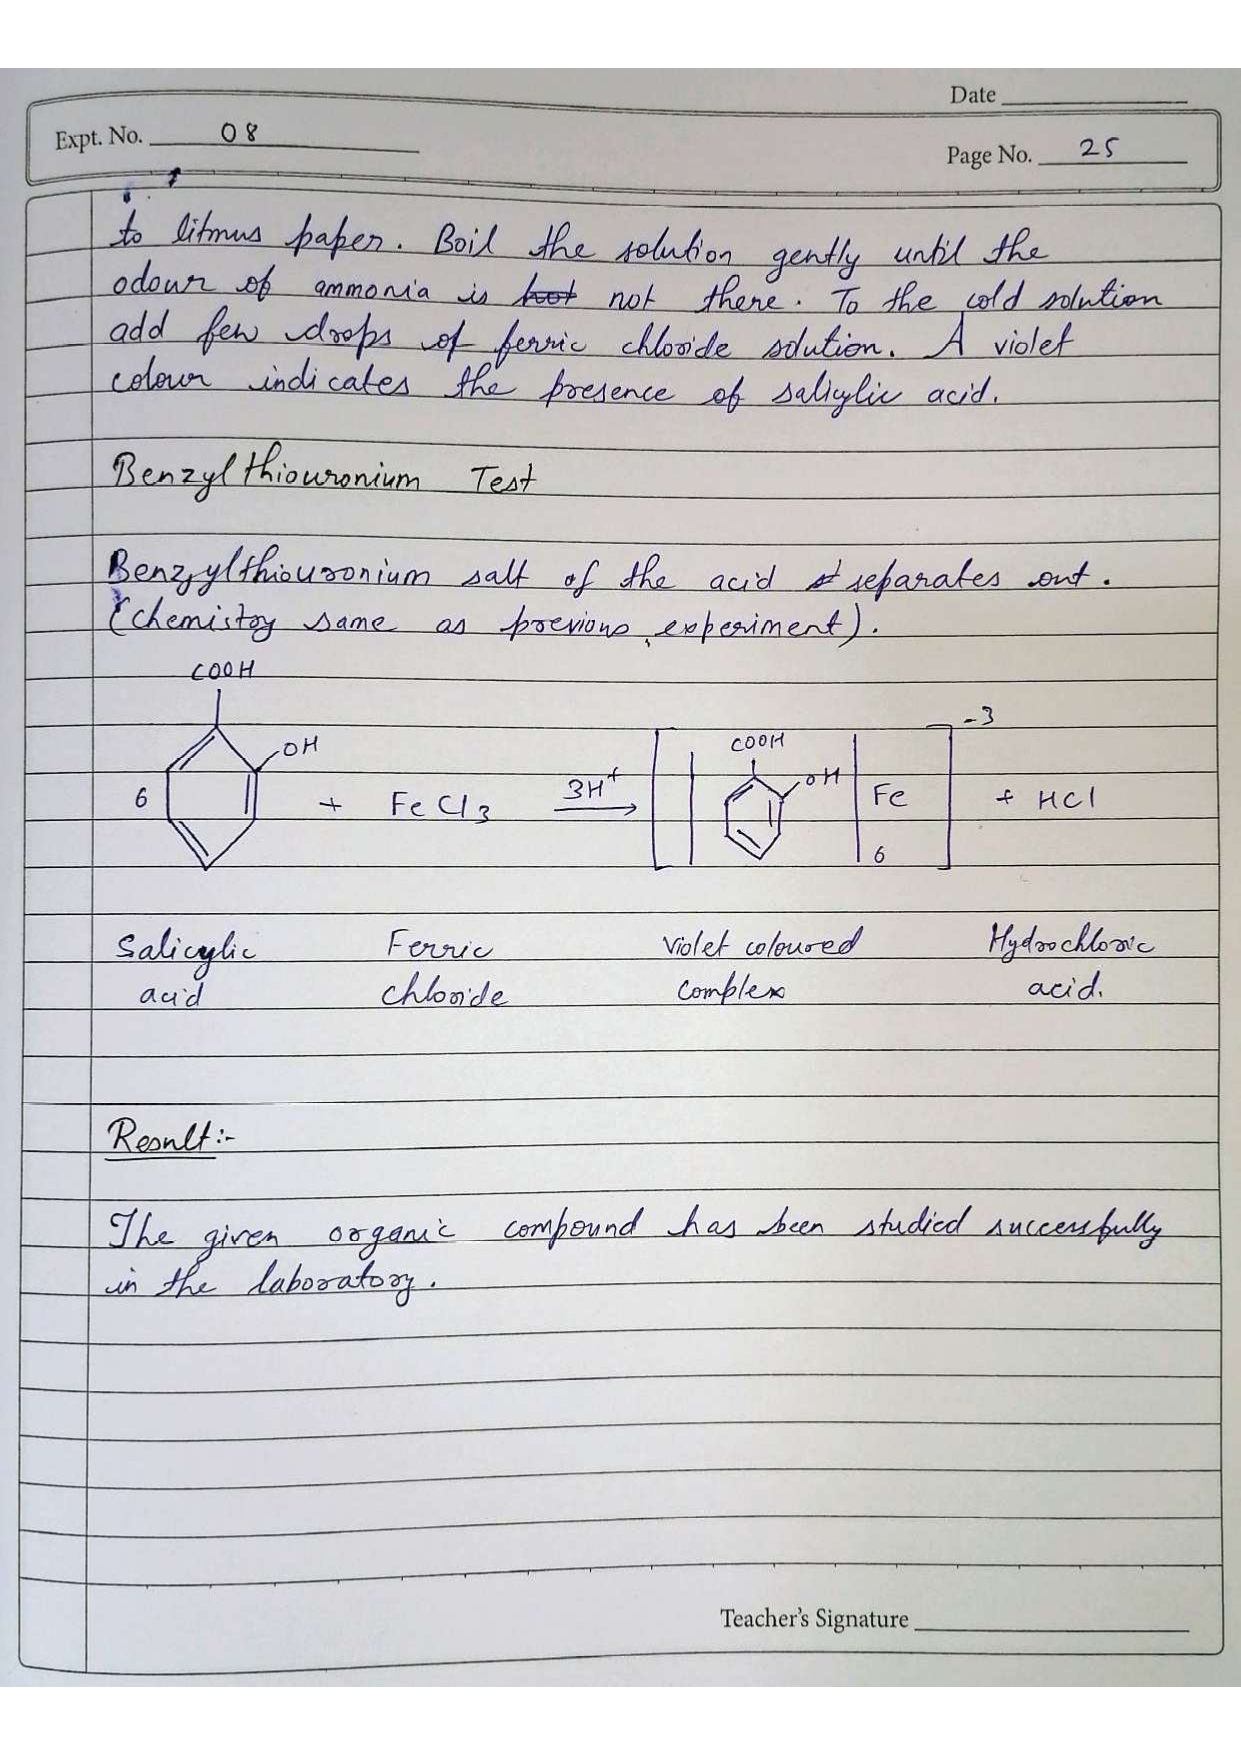 Date
Expt. No. 08
Page No. 25
to litmus paper. Boil the solution gently until the
odour of ammonia is not there. To the cold solution
add few drops of ferric chloride solution. A violet
colour indicates the presence of saliylic acid.
Benzylthiouronium Test
Benzylthiouronium salt of the acid separates out.
(chemistry same as previous experiment).
COOH
OH
6 + FeCl3 3H+ → [ | COOH OH | Fe 6 ] -3 + HCl
Salicylic Ferric Violet coloured Hydrochloric
acid chloride complex acid.
Result:-
The given organic compound has been studied successfully
in the laboratory.
Teacher's Signature